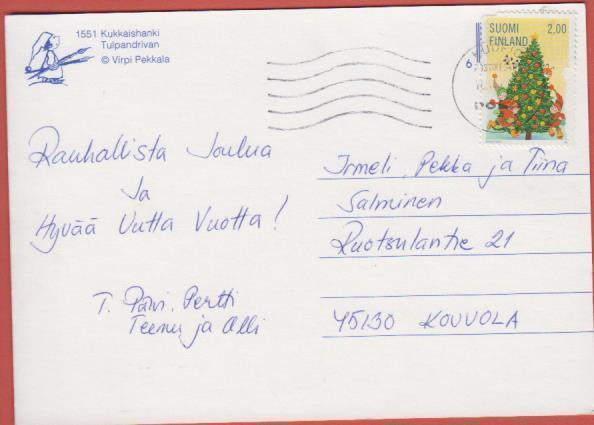 1551 Kukkaishanki
Tulpandrivan
© Virpi Pekkala
SUOMI 2,00
FINLAND
6
Rauhallista Joulua
Ja
Hyvää Uutta Vuotta!
T. Päivi, Pertti
Teemu ja Olli
Irmeli, Pekka ja Tiina
Salminen
Ruotsulantie 21
45130 KOUVOLA